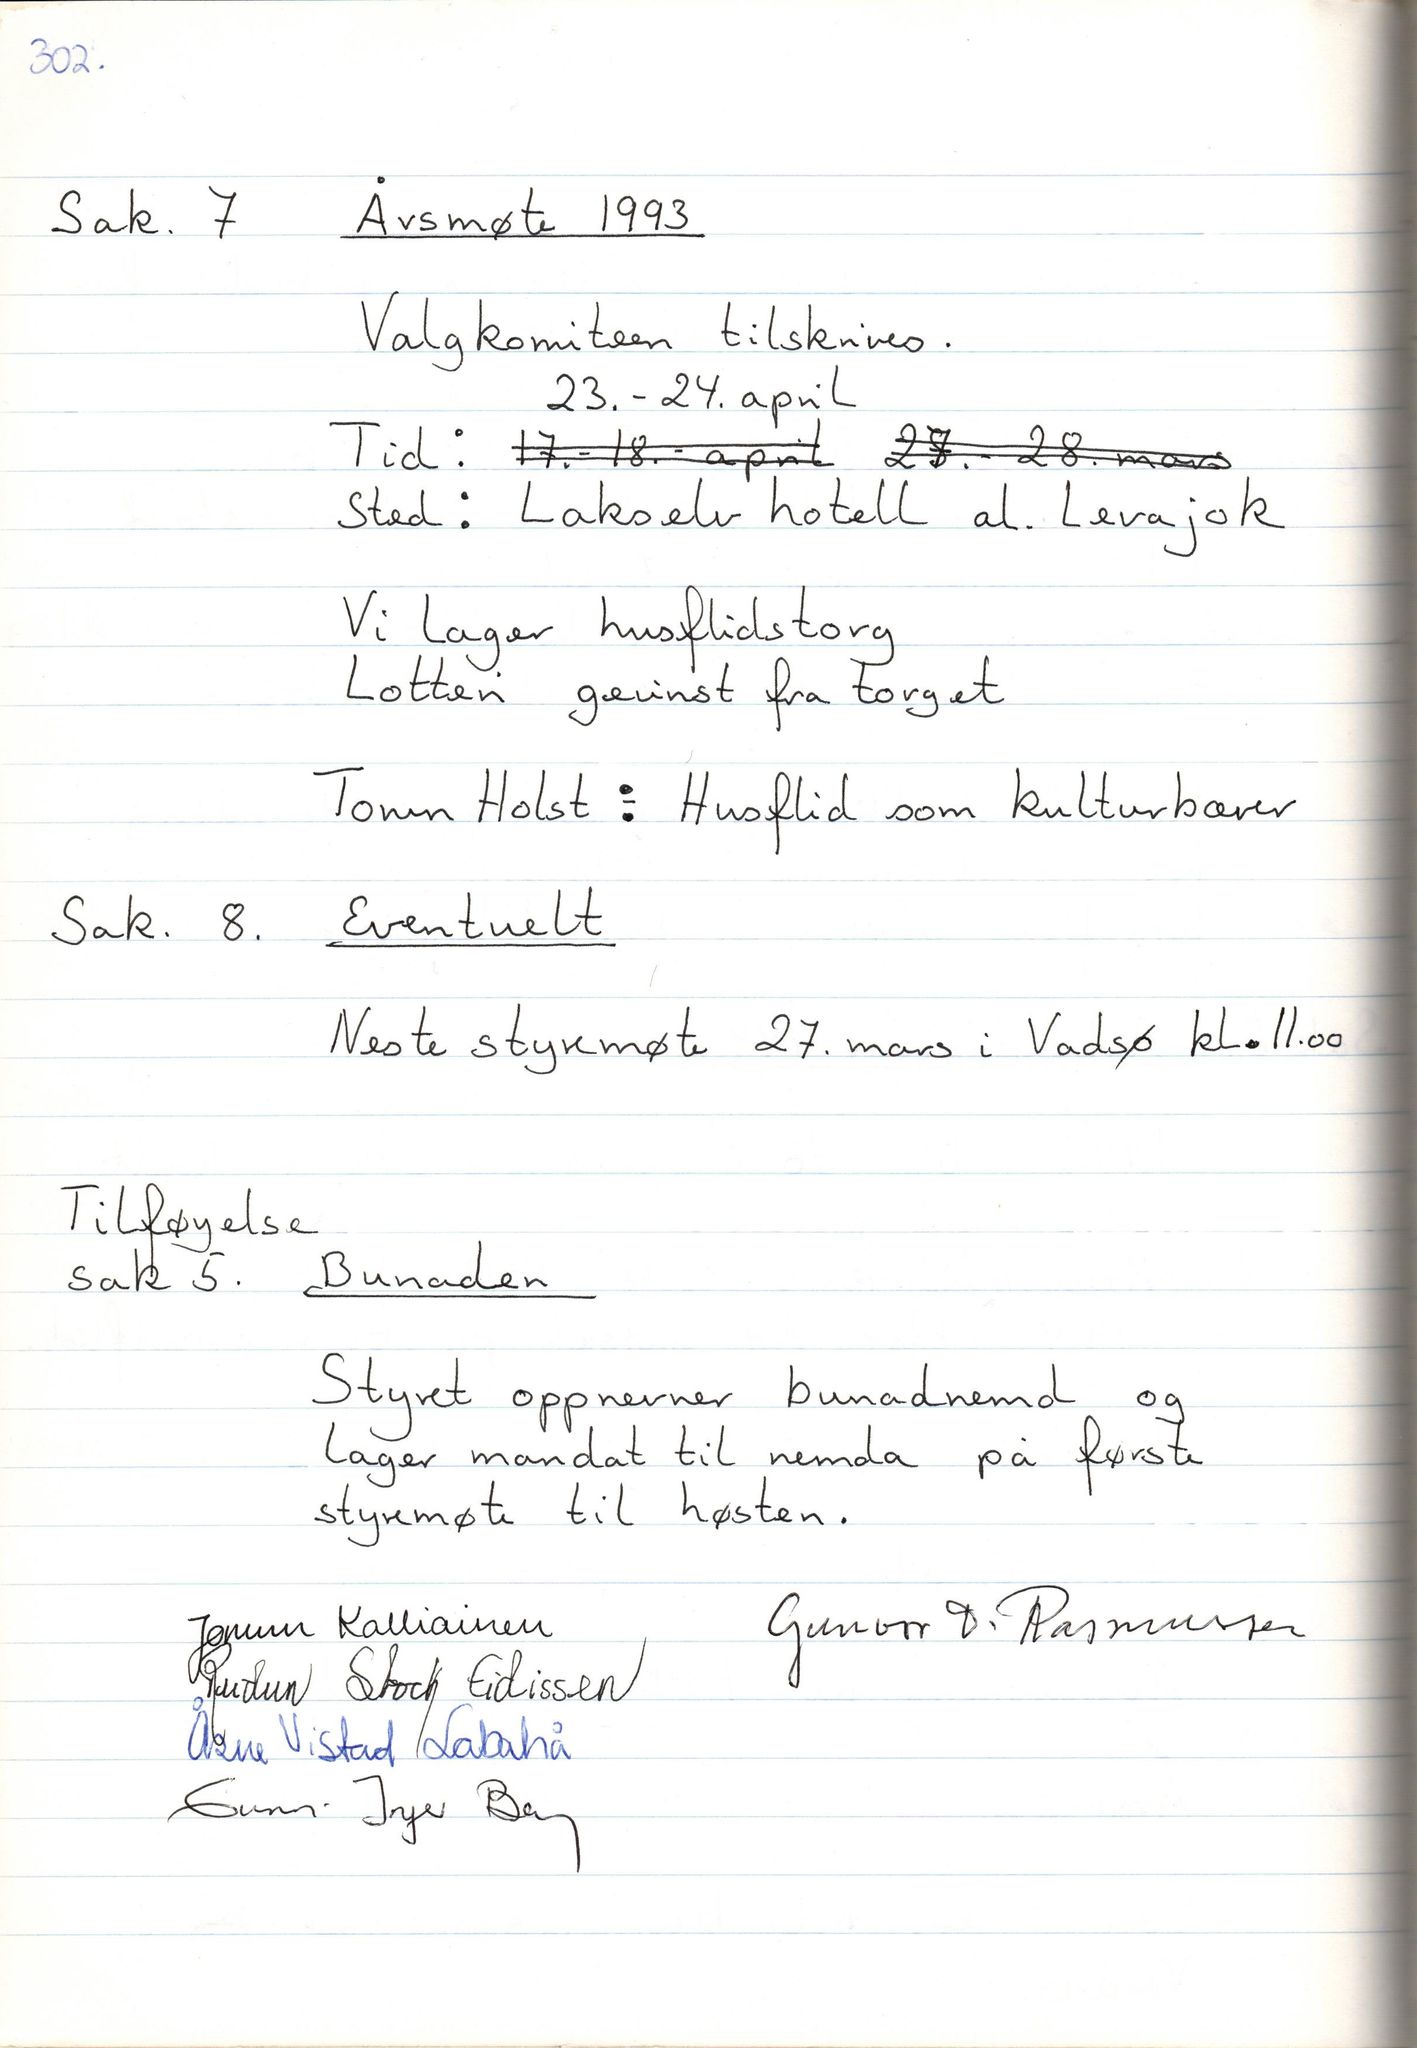 302.
Sak. 7 Årsmøte 1993
Valgkomiteen tilskrives.
23.-24. april
Tid: 17.-18.- april 27.- 28. mars
Sted: Lakselv hotell al. Levajok
Vi lager husflidstorg
Lotteri gevinst fra torget
Tomm Holst : Husflid som kulturbærer
Sak. 8. Eventuelt
Neste styremøte 27. mars i Vadsø kl. 11.00
Tilføyelse
sak 5. Bunaden
Styret oppnevner bunadnemd og
lager mandat til nemda på første
styremøte til høsten.
Jorunn Kalliainen Gunvor D. Rasmussen
Stock Eidissen
Vistad Labahå
Inger